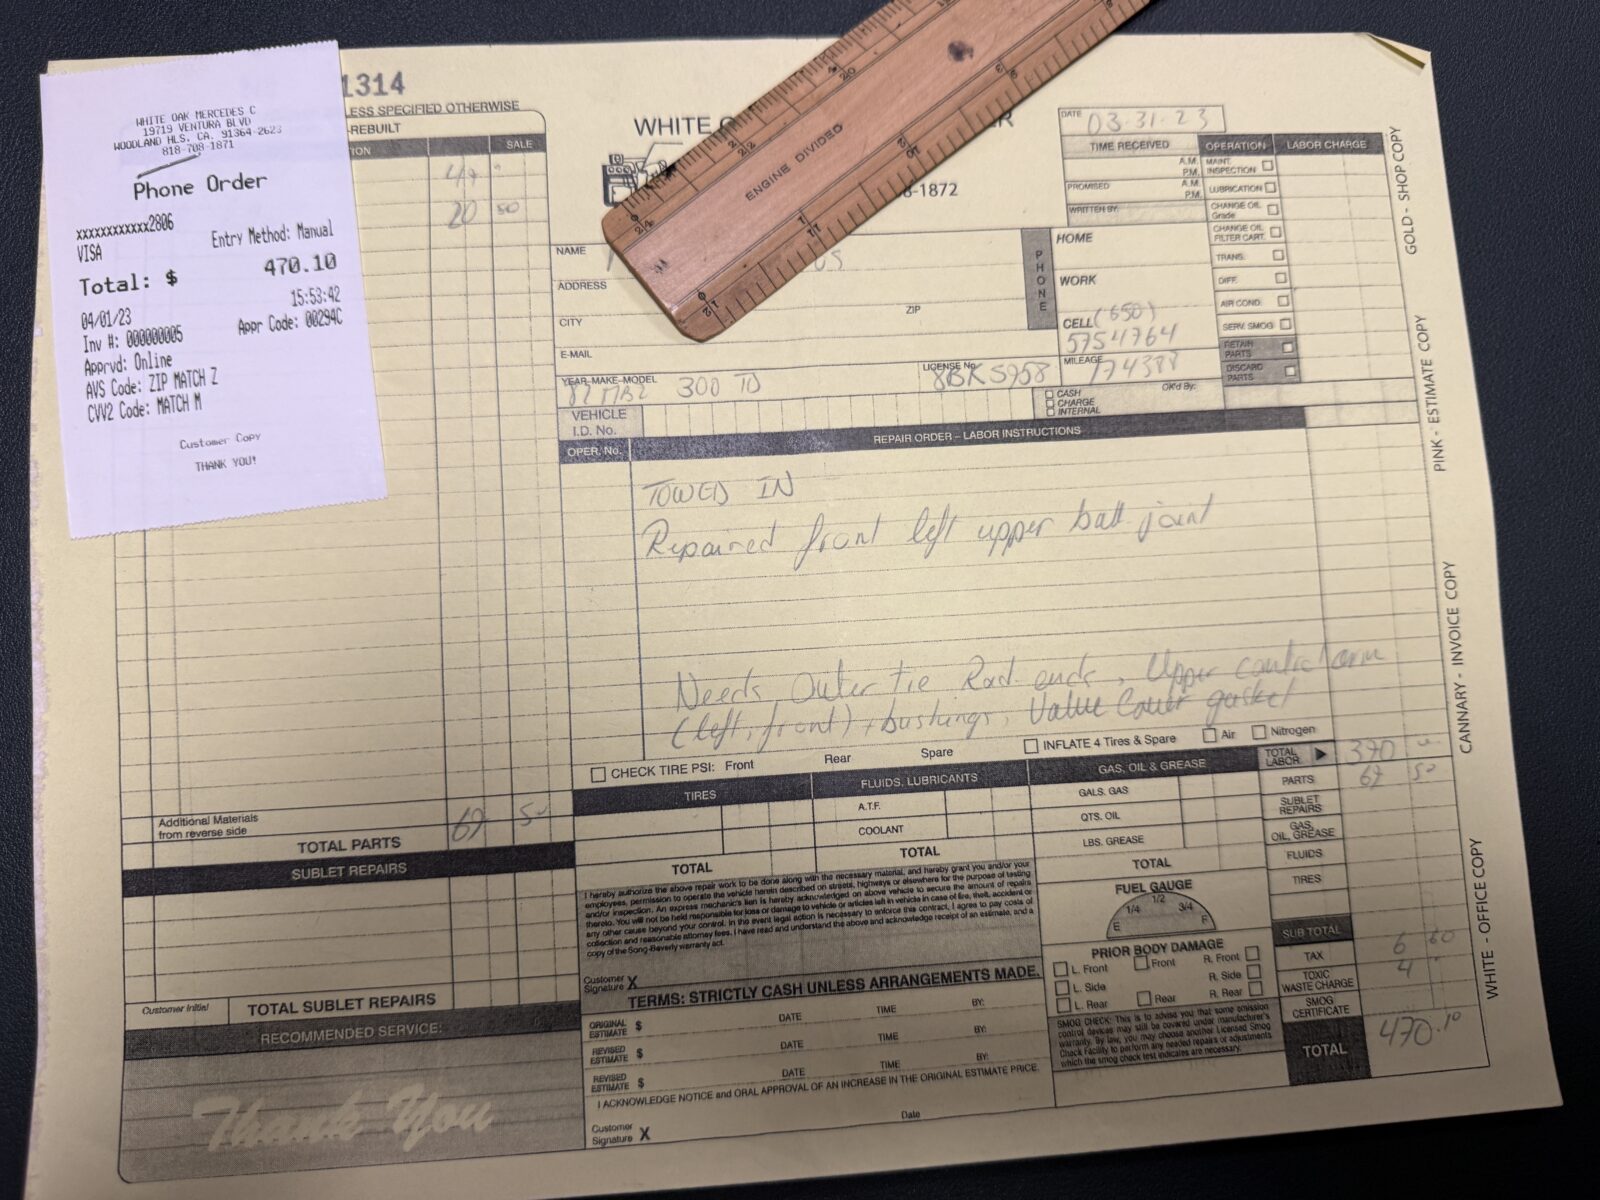 WHITE OAK MERCEDES C
19719 VENTURA BLVD
WOODLAND HLS. CA. 91364-2623
818-708-1871
Phone Order
xxxxxxxxxxxx2806
VISA Entry Method: Manual
Total: $ 470.10
04/01/23 15:53:42
Inv #: 000000005 Appr Code: 00294C
Apprvd: Online
AVS Code: ZIP MATCH Z
CVV2 Code: MATCH M
Customer Copy
THANK YOU!
1314
LESS SPECIFIED OTHERWISE
-REBUILT
ION SALE
20 50
WHITE
-1872
ENGINE DIVIDED
DATE 03-31-23
TIME RECEIVED A.M. P.M.
PROMISED A.M. P.M.
WRITTEN BY:
OPERATION LABOR CHARGE
MAINT. INSPECTION
LUBRICATION
CHANGE OIL Grade
CHANGE OIL FILTER CART.
TRANS.
DIFF.
AIR COND.
SERV. SMOG
RETAIN PARTS
DISCARD PARTS
NAME
ADDRESS
CITY ZIP
E-MAIL
PHONE
HOME
WORK
CELL (650)
5754764
MILEAGE 174388
YEAR-MAKE-MODEL 300 TD
LICENSE No. 8BKS958
VEHICLE I.D. No.
CASH
CHARGE
INTERNAL
OK'd By:
OPER. No. REPAIR ORDER – LABOR INSTRUCTIONS
TOWED IN
Repaired front left upper ball joint
Needs Outer tie Rod ends, Upper control arm
(left, front) + bushings, Valve Cover gasket
CHECK TIRE PSI: Front Rear Spare INFLATE 4 Tires & Spare Air Nitrogen
TIRES FLUIDS, LUBRICANTS GAS, OIL & GREASE
A.T.F. GALS. GAS
COOLANT QTS. OIL
LBS. GREASE
TOTAL TOTAL TOTAL
TOTAL LABOR 390
PARTS 69 50
SUBLET REPAIRS
GAS, OIL, GREASE
FLUIDS
TIRES
SUB TOTAL
TAX 6 60
TOXIC WASTE CHARGE 4
SMOG CERTIFICATE
TOTAL 470.10
Additional Materials from reverse side
TOTAL PARTS 69 50
SUBLET REPAIRS
Customer Initial TOTAL SUBLET REPAIRS
RECOMMENDED SERVICE:
Thank You
I hereby authorize the above repair work to be done along with the necessary material, and hereby grant you and/or your
employees, permission to operate the vehicle herein described on streets, highways or elsewhere for the purpose of testing
and/or inspection. An express mechanic's lien is hereby acknowledged on above vehicle to secure the amount of repairs
thereto. You will not be held responsible for loss or damage to vehicle or articles left in vehicle in case of fire, theft, accident or
any other cause beyond your control. In the event legal action is necessary to enforce this contract, I agree to pay costs of
collection and reasonable attorney fees. I have read and understand the above and acknowledge receipt of an estimate, and a
copy of the Song-Beverly warranty act.
Customer Signature X
TERMS: STRICTLY CASH UNLESS ARRANGEMENTS MADE.
ORIGINAL ESTIMATE $ DATE TIME BY:
REVISED ESTIMATE $ DATE TIME BY:
REVISED ESTIMATE $ DATE TIME BY:
I ACKNOWLEDGE NOTICE and ORAL APPROVAL OF AN INCREASE IN THE ORIGINAL ESTIMATE PRICE.
Customer Signature X Date
FUEL GAUGE
E 1/4 1/2 3/4 F
PRIOR BODY DAMAGE
L. Front Front R. Front
L. Side R. Side
L. Rear Rear R. Rear
SMOG CHECK: This is to advise you that some emission
control devices may still be covered under manufacturer's
warranty. By law, you may choose another Licensed Smog
Check Facility to perform any needed repairs or adjustments
which the smog check test indicates are necessary.
GOLD - SHOP COPY
PINK - ESTIMATE COPY
CANNARY - INVOICE COPY
WHITE - OFFICE COPY